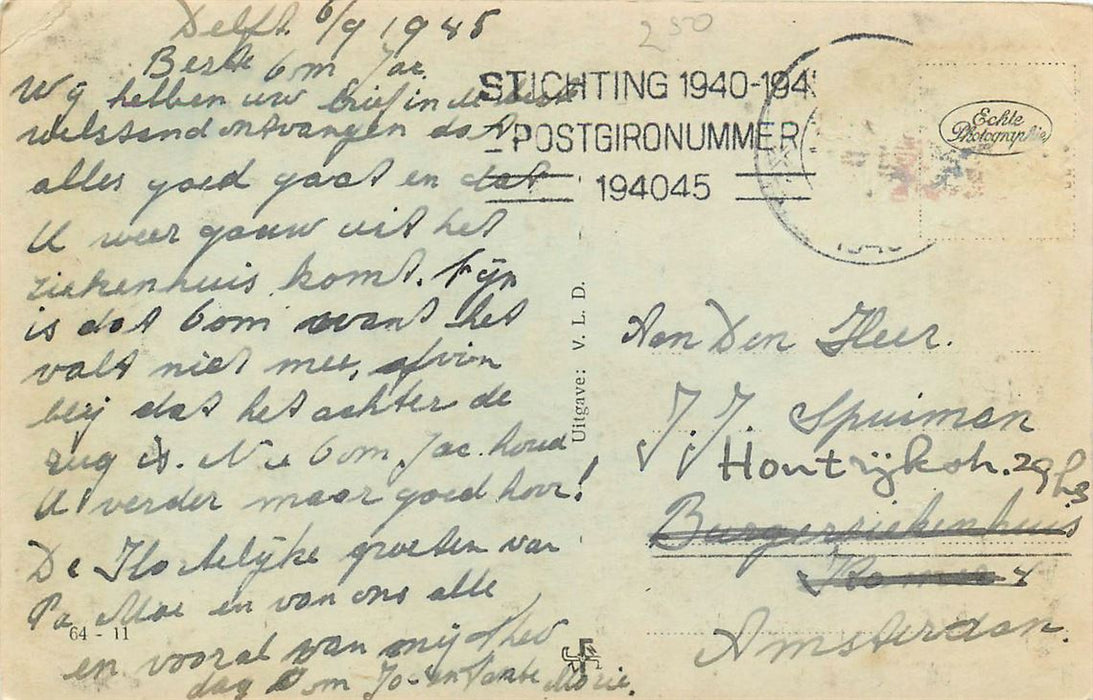 Delft 6/9 1945
250
Beste Oom Jac.
Wy hebben uw brief in de best
welstand ontvangen dat
alles goed gaat en dat
U weer gauw uit het
ziekenhuis komt. Fijn
is dat Oom want het
valt niet mee, afvien
bezij dat het achter de
rug is. Nu Oom Jac. houd
U verder maar goed hoor!
De Hartelijke groeten van
Pa Moe en van ons alle
en vooral van mij
dag Oom Jo- en Tante Marie.
64 - 11
STICHTING 1940-194
POSTGIRONUMMER
194045
Echte
Photographie
Uitgave: V. L. D.
Aan Den Heer.
J. J. Spuiman
Houtrijkstr. 29 hs
Burgerziekenhuis
Kamer 4
Amsterdam.